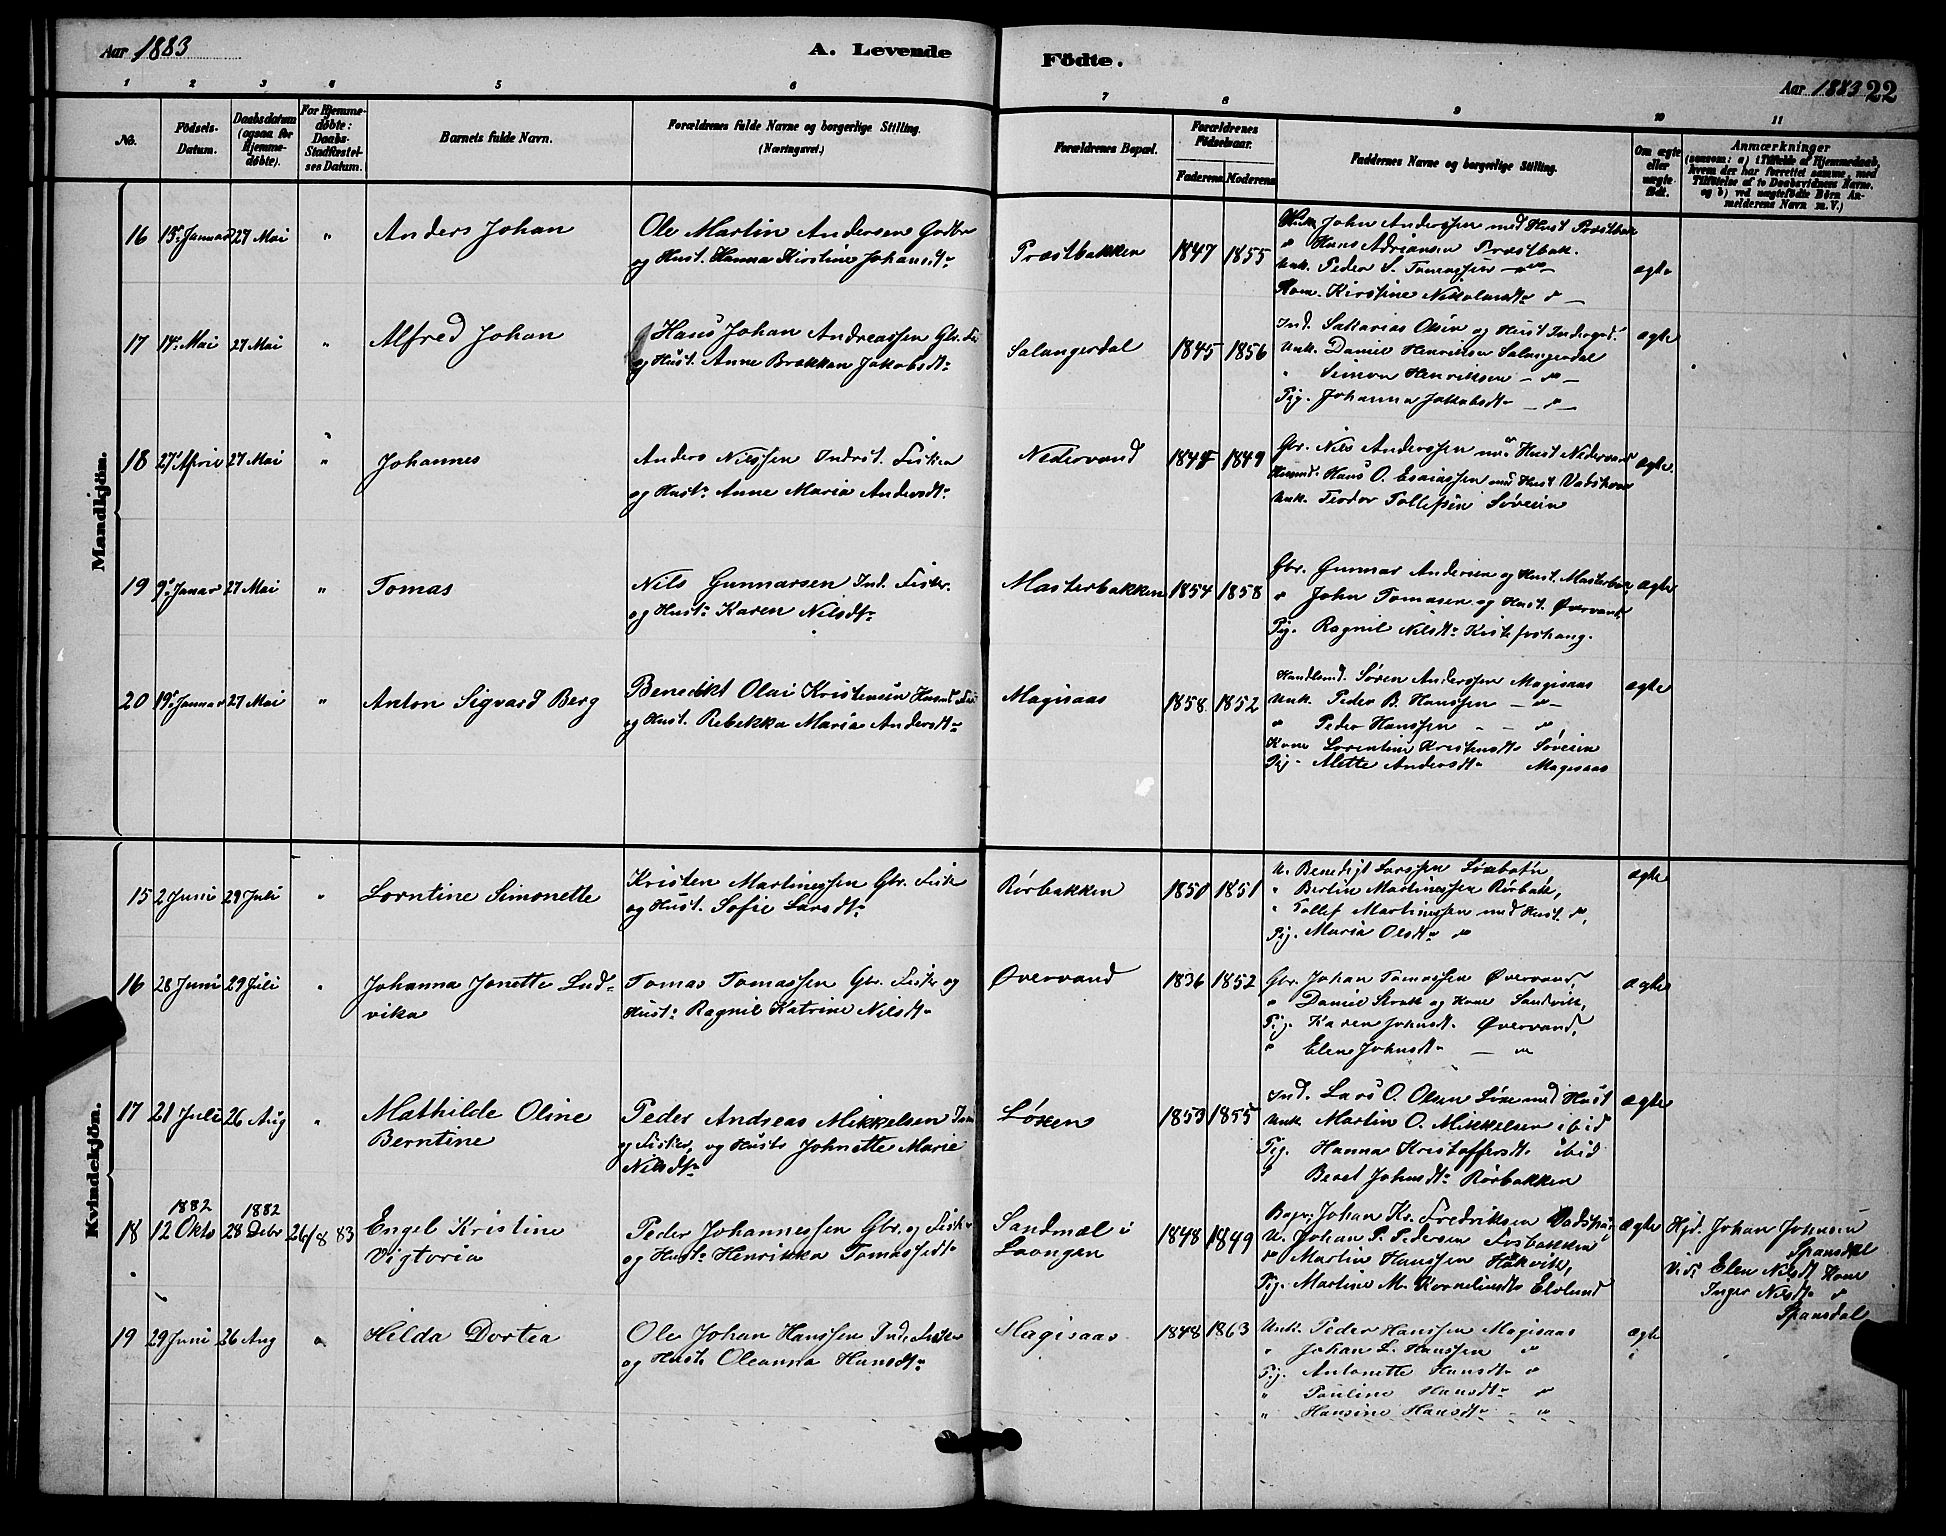 Aar 1883
A. Levende
Födte.
Aar 1883
22
1 2 3 4 5 6 7 8 9 10 11
No.
Födsels-Datum.
Daabsdatum (ogsaa for Hjemmedöbte).
For Hjemmedöbte: Daabs-Stadfæstelses Datum.
Barnets fulde Navn.
Forældrenes fulde Navne og borgerlige Stilling.
(Næringsvei.)
Forældrenes Bopæl.
Forældrenes Födselsaar.
Faderens
Moderens
Faddernes Navne og borgerlige Stilling.
Om ægte eller uægte födt.
Anmærkninger
(saasom: a) i Tilfælde af Hjemmedaab, hvem der har forrettet samme, med Tilföielse af to Daabsvidners Navne, og b) ved uægtefödte Börn Anmelderens Navn m. V.)
Mandkjön.
16 Januar 27 Mai " Anders Johan
Ole Martin Andersen
og Hust. Hanna Kirstine Johansdtr
Præstbakken 1847 1855
John Anderssen med Hust
" Hans Adriansen Præstbak.
Unk. Peder S. Tomassen
Kirstine
ægte
17 14 Mai 27 Mai " Alfred Johan
Hans Johan Andreassen Gbr. Fi
og Hust. Anne Brekken Jakobsdtr
Salangsdal 1845 1856
Ind. Sakarias Olsen og Hust
Unk. Daniel Henriksen Salangsdal
" Simon Henriksen — " —
Pig. Johanna Jakobsdtr — " —
ægte
18 27 April 27 Mai " Johannes
Anders Nilssen Indrst. Fisker
og Hustr Anne Maria Andersdtr
Nedervand 1849
Gbr. Nils Anderssen m. Hust Nedervand
Hans O. Esaiassen med Hust
Unk. Teodor Tollefsen Søveien
ægte
19 9 Januar 27 Mai " Tomas
Nils Gunnarsen Ind. Fisker.
og Hustr Karen Nilsdtr
Masterbakken 1854 1858
Gbr. Gunnar Andersen og Hust. Masterbak
" John Tomasen og Hust. Øvervand
Pig. Ragnil Nilsdtr
ægte
20 19 Januar 27 Mai " Anton Sigvard Berg
Benedikt Olai Kristensen
og Hust. Rebekka Maria Andersdtr
Magisaas 1858 1852
Handlsmd. Søren Anderssen Magisaas
Unk. Peder B. Hanssen — " —
" Peder Hanssen - - "
Kone Lorentine Kristensdtr Søveien
Pig - Alette Andersdtr Magisaas
ægte
Kvindekjön.
15 2 Juni 29 Juli " Lorntine Simonette
Kristen Martinussen Gbr. Fisk
og Hust. Sofie Larsdtr
Rørbakken 1850 1851
U. Benedigt Larssen
" Bertin Martinussen Rørbak,
" Tollef Martinussen med Hust. "
Pig. Maria Olsdtr "
ægte
16 28 Juni 29 Juli " Johanna Jonette Lud-
vika
Tomas Tomassen Gbr. Fisker og
Hustr Ragnil Katrine Nilsdtr
Øvervand 1836 1852
Gbr. Johan Tomassen Øvervand,
" Daniel og Kone Sandvik,
Pig. Karen Johnsdtr Øvervand,
" Elen Johnsdtr — "
ægte
17 21 Juli 26 Aug " Mathilde Oline
Berntine
Peder Andreas Mikkelsen
og Fisker, og Hustr Johnette Marie
Nilsdtr
Løsen 1853 1855
Ind. Lars O. Olsen med Hust
Unk. Martin O. Mikkelsen ibid
Pig. Hanna Kristoffersdtr ibid
" Beret Johnsdtr Rørbakken
ægte
1882 1882
18 12 Oktb 28 Debr 26/8 83 Engel Kristine
Vigtoria
Peder Johannessen Gbr. og Fisker
og Hustr Henrikka Tomassedtr
Sandmæl i
Lavangen
1848 1849
Johan Kr. Fredriksen
U. Johan P. Pedersen Fosbakken
" Martin Hanssen Håkvik,
Pig. Martine M. Kornelinsdtr Elvlund
ægte
Hjd. Johan Johnsen
Spansdal
Vid: Elen Nilsdtr Kone
Inger Nilsdtr "
Spansdal
19 29 Juni 26 Aug " Hilda Dortea
Ole Johan Hanssen Ind. Fisker
og Hustr Oleanna Hansdtr
Magisaas 1848 1863
Unk. Peder Hanssen Magisaas
" Johan L. Hanssen "
Pig. Antonette Hansdtr "
" Pauline Hansdtr "
" Hansine Hansdtr - "
ægte